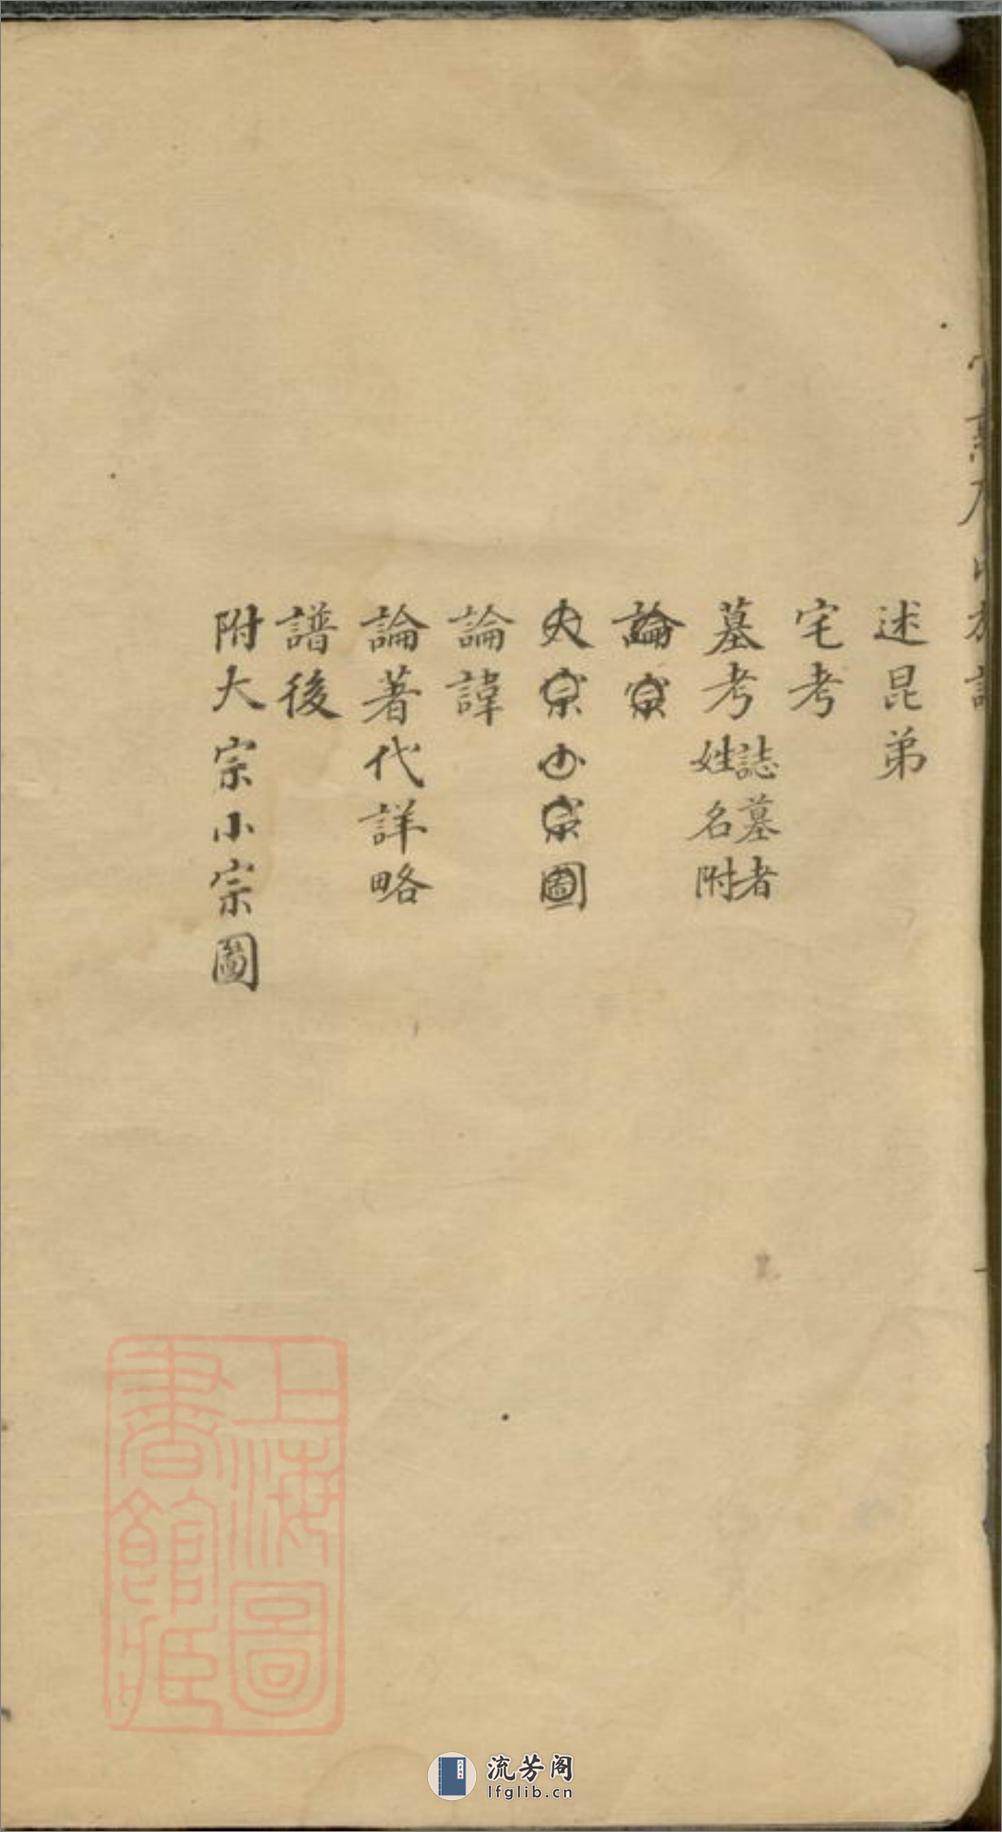 述昆弟
宅考
墓考 誌墓者姓名附
論宗
大宗小宗圖
論諱
論著代詳略
譜後
附大宗小宗圖
上海圖書館藏
流芳阁
lfglib.cn